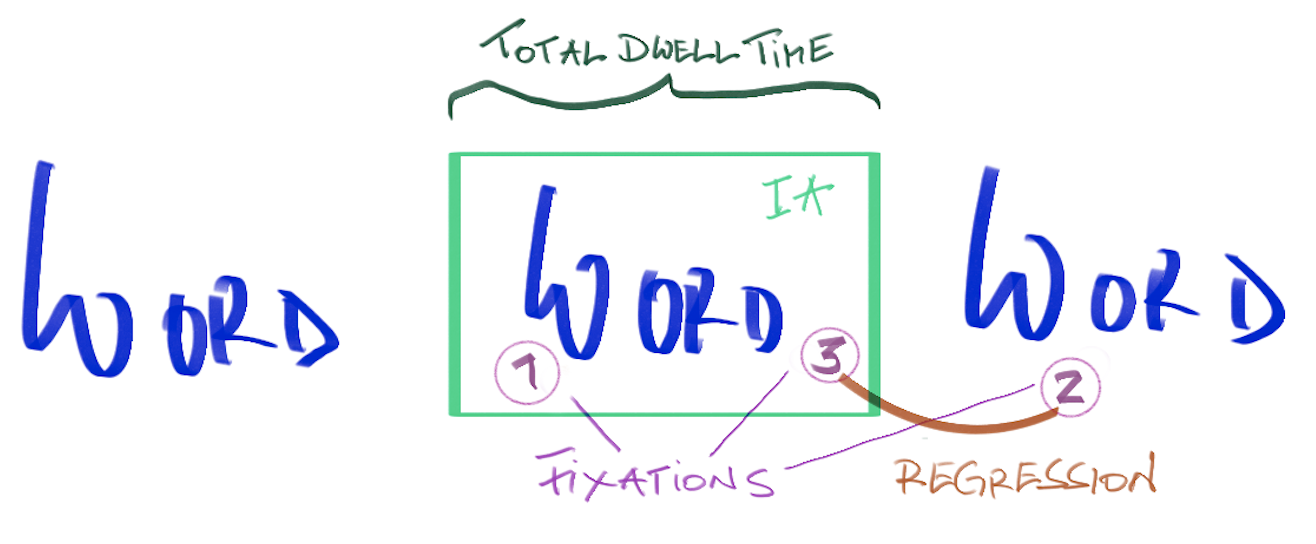 TOTAL DWELL TIME
IA
WORD WORD WORD
1 3 2
FIXATIONS REGRESSION